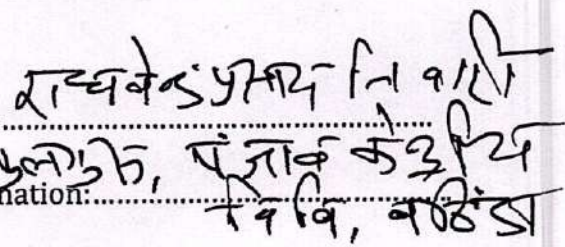 राघवेन्द्र प्रसाद तिवारी
कुलपति, पंजाब केन्द्रीय
nation:
वि वि, बठिंडा